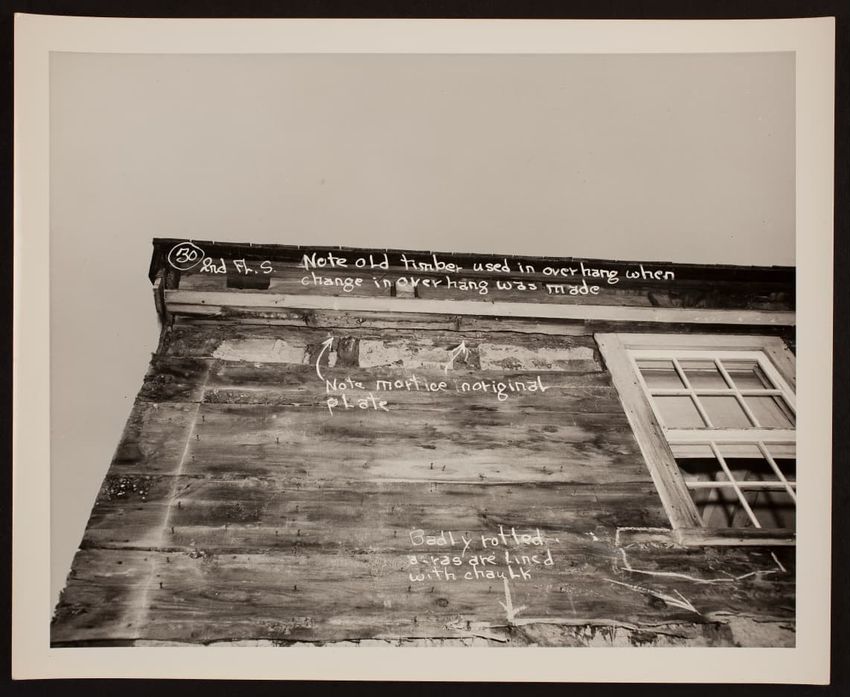 30 2nd Fl. S. Note old timber used in overhang when
change in overhang was made
Note mortice in original
plate
Badly rotted
areas are lined
with chaulk